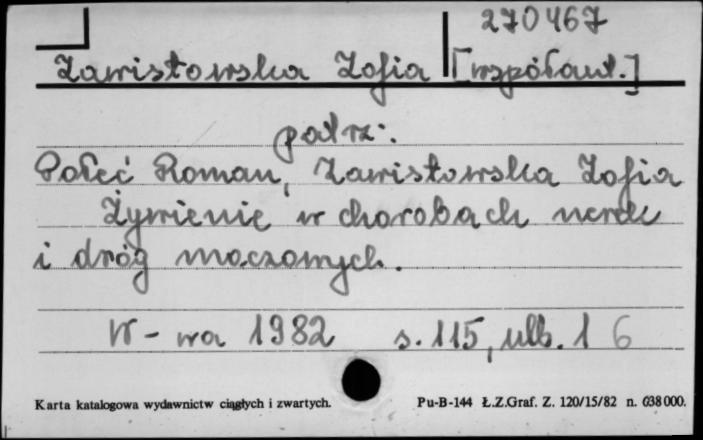 270467
Zawistowska Zofia [współaut.]
patrz:
Połeć Roman, Zawistowska Zofia
Żywienie w chorobach nerek
i dróg moczowych.
W-wa 1982 s. 115, nlb. 1 6
Karta katalogowa wydawnictw ciągłych i zwartych. Pu-B-144 Ł.Z.Graf. Z. 120/15/82 n. 638 000.